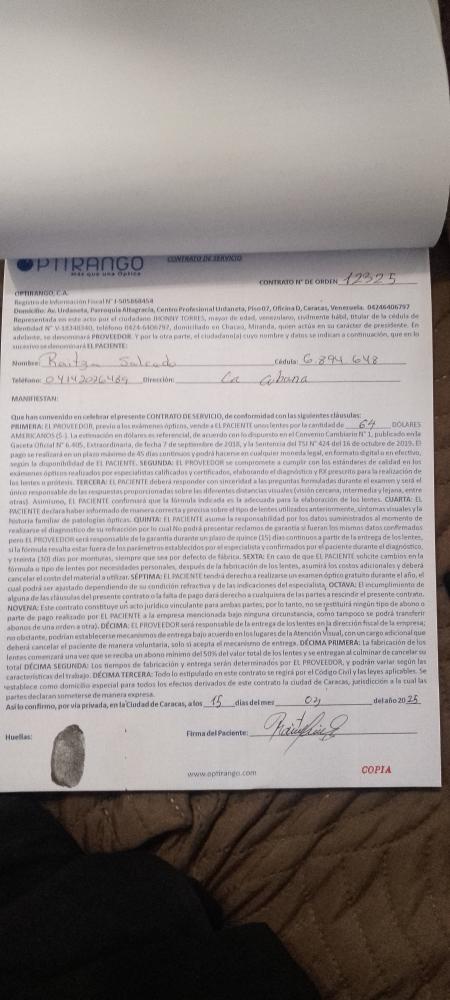 OPTIRANGO
Más que una Óptica
CONTRATO DE SERVICIO
CONTRATO N° DE ORDEN 12325
OPTIRANGO, C.A.
Registro de Información Fiscal N° J-505868454
Domicilio: Av. Urdaneta, Parroquia Altagracia, Centro Profesional Urdaneta, Piso 07, Oficina D, Caracas, Venezuela. 04246406797
Representada en este acto por el ciudadano JHONNY TORRES, mayor de edad, venezolano, civilmente hábil, titular de la cédula de
identidad N° V-18348340, teléfono 0424-6406797, domiciliado en Chacao, Miranda, quien actúa en su carácter de presidente. En
adelante, se denominará PROVEEDOR. Y por la otra parte, el ciudadano(a) cuyo nombre y datos se indican a continuación, que en lo
sucesivo se denominará EL PACIENTE:
Nombre: Salcedo Cédula: 6.894.648
Teléfono: 04142026489 Dirección: La
MANIFIESTAN:
Que han convenido en celebrar el presente CONTRATO DE SERVICIO, de conformidad con las siguientes cláusulas:
PRIMERA: EL PROVEEDOR, previo a los exámenes ópticos, vende a EL PACIENTE unos lentes por la cantidad de 64 DÓLARES
AMERICANOS ($-). La estimación en dólares es referencial, de acuerdo con lo dispuesto en el Convenio Cambiario N° 1, publicado en la
Gaceta Oficial N° 6.405, Extraordinaria, de fecha 7 de septiembre de 2018, y la Sentencia del TSJ N° 424 del 16 de octubre de 2019. El
pago se realizará en un plazo máximo de 45 días continuos y podrá hacerse en cualquier moneda legal, en formato digital o en efectivo,
según la disponibilidad de EL PACIENTE. SEGUNDA: EL PROVEEDOR se compromete a cumplir con los estándares de calidad en los
exámenes ópticos realizados por especialistas calificados y certificados, elaborando el diagnóstico y RX prescrito para la realización de
los lentes o prótesis. TERCERA: EL PACIENTE deberá responder con sinceridad a las preguntas formuladas durante el examen y será el
único responsable de las respuestas proporcionadas sobre las diferentes distancias visuales (visión cercana, intermedia y lejana, entre
otras). Asimismo, EL PACIENTE confirmará que la fórmula indicada es la adecuada para la elaboración de los lentes. CUARTA: EL
PACIENTE declara haber informado de manera correcta y precisa sobre el tipo de lentes utilizados anteriormente, síntomas visuales y la
historia familiar de patologías ópticas. QUINTA: EL PACIENTE asume la responsabilidad por los datos suministrados al momento de
realizarse el diagnóstico de su refracción por lo cual No podrá presentar reclamos de garantía si fueron los mismos datos confirmados
pero EL PROVEEDOR será responsable de la garantía durante un plazo de quince (15) días continuos a partir de la entrega de los lentes,
si la fórmula resulta estar fuera de los parámetros establecidos por el especialista y confirmados por el paciente durante el diagnóstico,
y treinta (30) días por monturas, siempre que sea por defecto de fábrica. SEXTA: En caso de que EL PACIENTE solicite cambios en la
fórmula o tipo de lentes por necesidades personales, después de la fabricación de los lentes, asumirá los costos adicionales y deberá
cancelar el costo del material a utilizar. SÉPTIMA: EL PACIENTE tendrá derecho a realizarse un examen óptico gratuito durante el año, el
cual podrá ser ajustado dependiendo de su condición refractiva y de las indicaciones del especialista. OCTAVA: El incumplimiento de
alguna de las cláusulas del presente contrato o la falta de pago dará derecho a cualquiera de las partes a rescindir el presente contrato.
NOVENA: Este contrato constituye un acto jurídico vinculante para ambas partes; por lo tanto, no se restituirá ningún tipo de abono o
parte de pago realizado por EL PACIENTE a la empresa mencionada bajo ninguna circunstancia, como tampoco se podrá transferir
abonos de una orden a otra). DÉCIMA: EL PROVEEDOR será responsable de la entrega de los lentes en la dirección fiscal de la empresa;
no obstante, podrían establecerse mecanismos de entrega bajo acuerdo en los lugares de la Atención Visual, con un cargo adicional que
deberá cancelar el paciente de manera voluntaria, solo si acepta el mecanismo de entrega. DÉCIMA PRIMERA: La fabricación de los
lentes comenzará una vez que se reciba un abono mínimo del 50% del valor total de los lentes y se entregan al culminar de cancelar su
total DÉCIMA SEGUNDA: Los tiempos de fabricación y entrega serán determinados por EL PROVEEDOR, y podrán variar según las
características del trabajo. DÉCIMA TERCERA: Todo lo estipulado en este contrato se regirá por el Código Civil y las leyes aplicables. Se
establece como domicilio especial para todos los efectos derivados de este contrato la ciudad de Caracas, jurisdicción a la cual las
partes declaran someterse de manera expresa.
Así lo confirmo, por vía privada, en la Ciudad de Caracas, a los 15 días del mes del año 2025
Huellas: Firma del Paciente:
www.optirango.com
COPIA